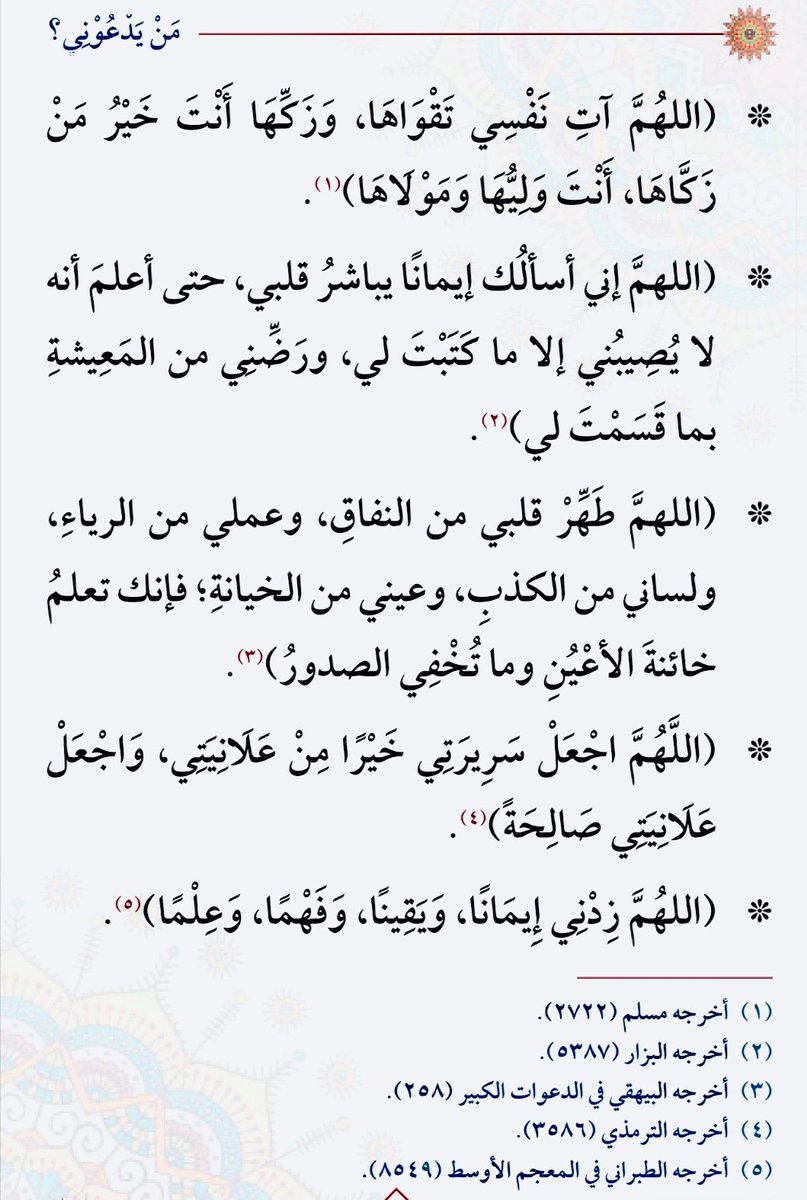 مَنْ يَدْعُوْنِي؟
❊ (اللهُمَّ آتِ نَفْسِي تَقْوَاهَا، وَزَكِّهَا أَنْتَ خَيْرُ مَنْ
زَكَّاهَا، أَنْتَ وَلِيُّهَا وَمَوْلَاهَا)(١).
❊ (اللهمَّ إني أسألُك إيمانًا يباشرُ قلبي، حتى أعلمَ أنه
لا يُصِيبُني إلا ما كَتَبْتَ لي، ورَضِّنِي من المَعِيشةِ
بما قَسَمْتَ لي)(٢).
❊ (اللهمَّ طَهِّرْ قلبي من النفاقِ، وعملي من الرياءِ،
ولساني من الكذبِ، وعيني من الخيانةِ؛ فإنك تعلمُ
خائنةَ الأعْيُنِ وما تُخْفِي الصدورُ)(٣).
❊ (اللَّهُمَّ اجْعَلْ سَرِيرَتِي خَيْرًا مِنْ عَلَانِيَتِي، وَاجْعَلْ
عَلَانِيَتِي صَالِحَةً)(٤).
❊ (اللهُمَّ زِدْنِي إِيمَانًا، وَيَقِينًا، وَفَهْمًا، وَعِلْمًا)(٥).
(١) أخرجه مسلم (٢٧٢٢).
(٢) أخرجه البزار (٥٣٨٧).
(٣) أخرجه البيهقي في الدعوات الكبير (٢٥٨).
(٤) أخرجه الترمذي (٣٥٨٦).
(٥) أخرجه الطبراني في المعجم الأوسط (٨٥٤٩).